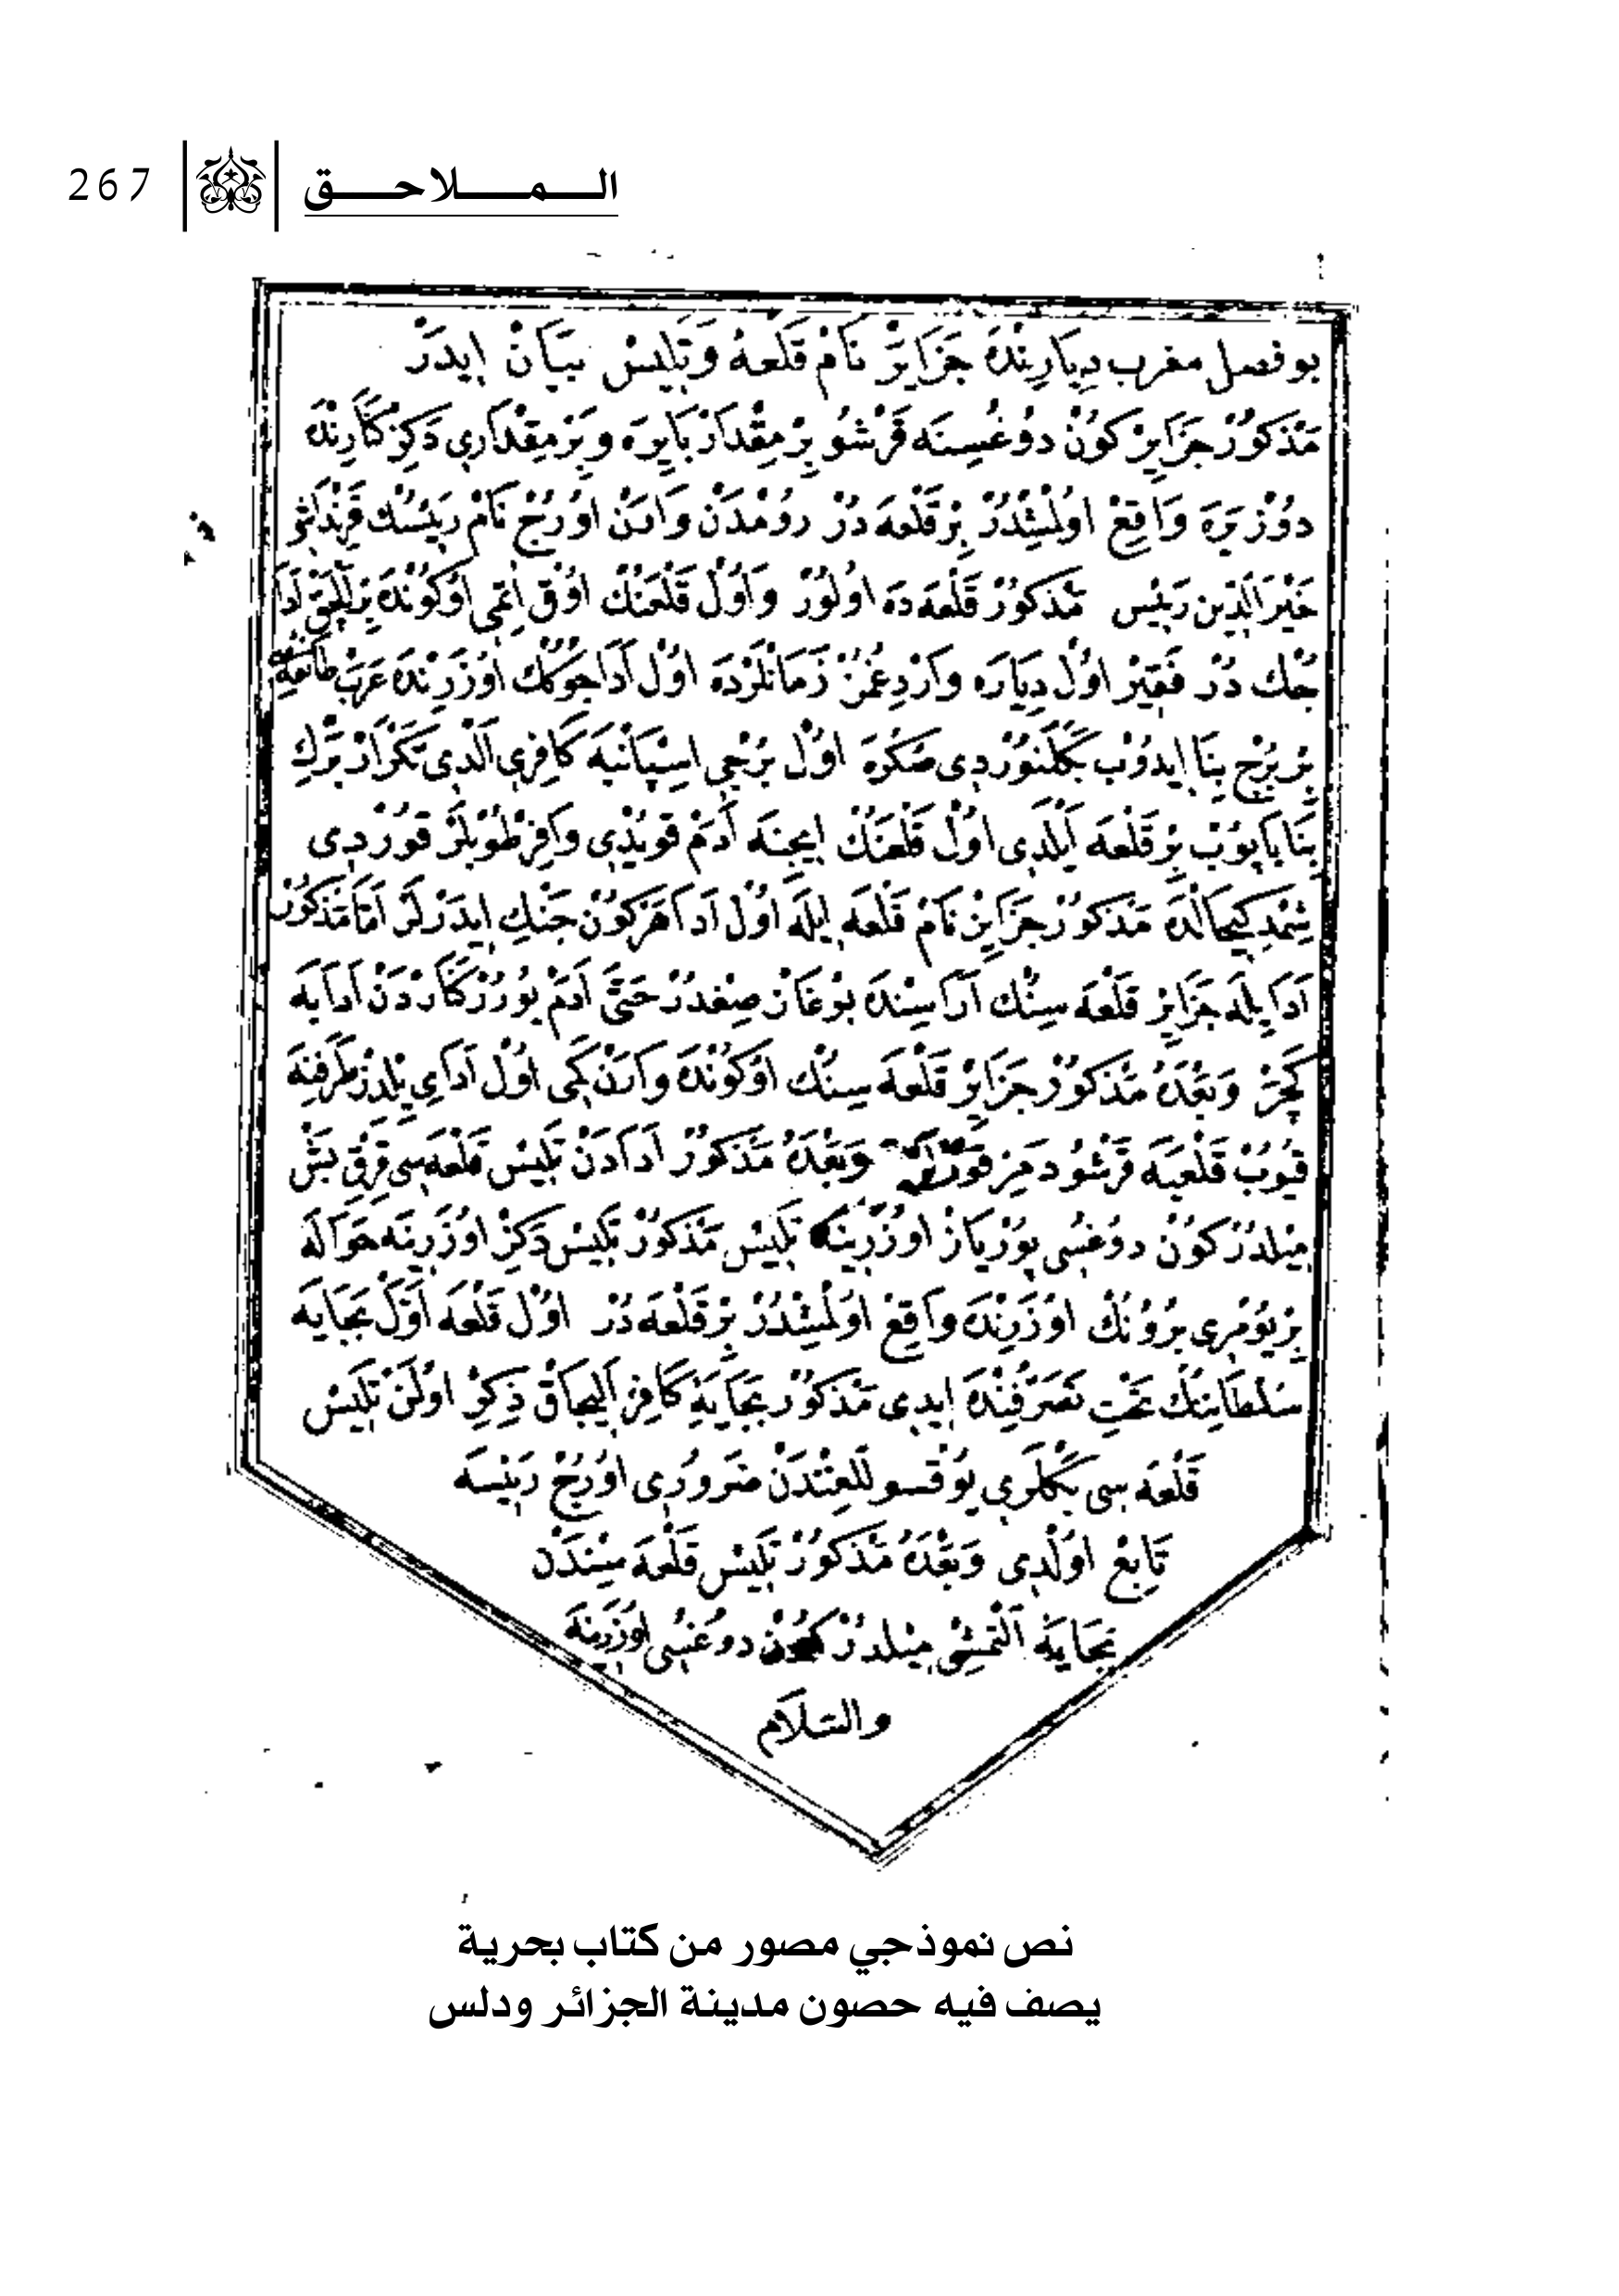 267 الملاحق
بو فصل مغرب دِيَارِنْدَهْ جَزَايِرْ نَامْ قَلْعَهُ وَتَلِيسْ بَيَانْ اِيدَرْ
مَذْكُورْ جَزَايِرْ كُونْ دُوغُسِينَه قَرْشُو بِرْ مِقْدَارْ بَايِرَه وبِرْ مِقْدَارِى دَكِزْ كَنَارِنْدَه
دُوزْ يَرَه وَاقِعْ اُولْمِشْدُرْ بِرْ قَلْعَه دُرْ رُومْدَنْ وَارَنْ اُورُجْ نَامْ رَيِسُكْ قَرِنْدَاشِى
خَيْرَالدِّين رَيِسْ مَذْكُورْ قَلْعَه دَه اُولُورْ وَاُولْ قَلْعَنُكْ اُوقْ اَتِمِى اُوكُونْدَه بِرْ اَلْچَقْ اَدَا
جُكْ دُرْ فَقِيرْ اُولْ دِيَارَه وَارْدِغُمُزْ زَمَانْلَرْدَه اُولْ اَدَاجُوكُكْ اُوزَرِنْدَه عَرَبْ طَائفه‌سى
بِرْ بُرْجْ بِنَا اِيدُوبْ بَكْلَنُورْدِى صُكْرَه اُولْ بُرْجِى اِسْپَانْيَه كَافِرِى اَلْدِى تَكْرَارْ بَرْكْ
بِنَا يَاپُوبْ بِرْ قَلْعَه اَيْلَدِى اُولْ قَلْعَنُكْ اِيچِنَه اَدَمْ قُويُدِى وَافِرْ طُوپْلَرْ قُورْدِى
شِمْدِيكِى حَالْدَه مَذْكُورْ جَزَايِرْ نَامْ قَلْعَه اِيلَه اُولْ اَدَا هَرْ كُونْ جَنْكِ اِيدَرْلَرْ اَمَّا مَذْكُورْ
اَدَا اِيلَه جَزَايِرْ قَلْعَه سِنُكْ اَرَاسِنْدَه بُوغَازْ صِغْدُرْ حَتَّى اَدَمْ يُورُرْ كَنَارْدَنْ اَدَايَه
كَچَرْ وَبَعْدَهُ مَذْكُورْ جَزَايِرْ قَلْعَه سِنُكْ اُوكُونْدَه وَارَنْ كَمِى اُولْ اَدَايِ يِلْدِزْ طَرَفِنَه
قُيُوبْ قَلْعَيَه قَرْشُو دَمِرْ وَبَعْدَهُ مَذْكُورْ اَدَادَنْ تَلِيسْ قَلْعَه سِى قِرْقْ بَشْ
مِيلْدُرْ كُونْ دُوغُسِى پُورْيَازْ اُوزَرِينَه تَلِيسْ مَذْكُورْ تَلِيسْ دَكِزْ اُوزَرِينَه حَوَالَه
بِرْ يُومْرِى بُرُونُكْ اُوزَرِنْدَه وَاقِعْ اُولْمِشْدُرْ بِرْ قَلْعَه دُرْ اُولْ قَلْعَه اَوَّلْ بَجَايَه
سُلْطَانِنُكْ تَحْتِ تَصَرُّفِنْدَه اِيدِى مَذْكُورْ بَجَايَهِ كَافِرْ اَلِيجَاقْ ذِكْرِ اُولَنْ تَلِيسْ
قَلْعَه سِى بَكْلَرِى يُوقْسُولْلُغِنْدَنْ ضَرُورِى اُورُجْ رَيِيسَه
تَابِعْ اُولْدِى وَبَعْدَهُ مَذْكُورْ تَلِيسْ قَلْعَه سِينْدَنْ
بَجَايَه اَلْتْمِشْ مِيلْدُرْ كُونْ دُوغُسِى اُوزَرِينَه
والسّلام
نص نموذجي مصور من كتاب بحرية
يصف فيه حصون مدينة الجزائر ودلس